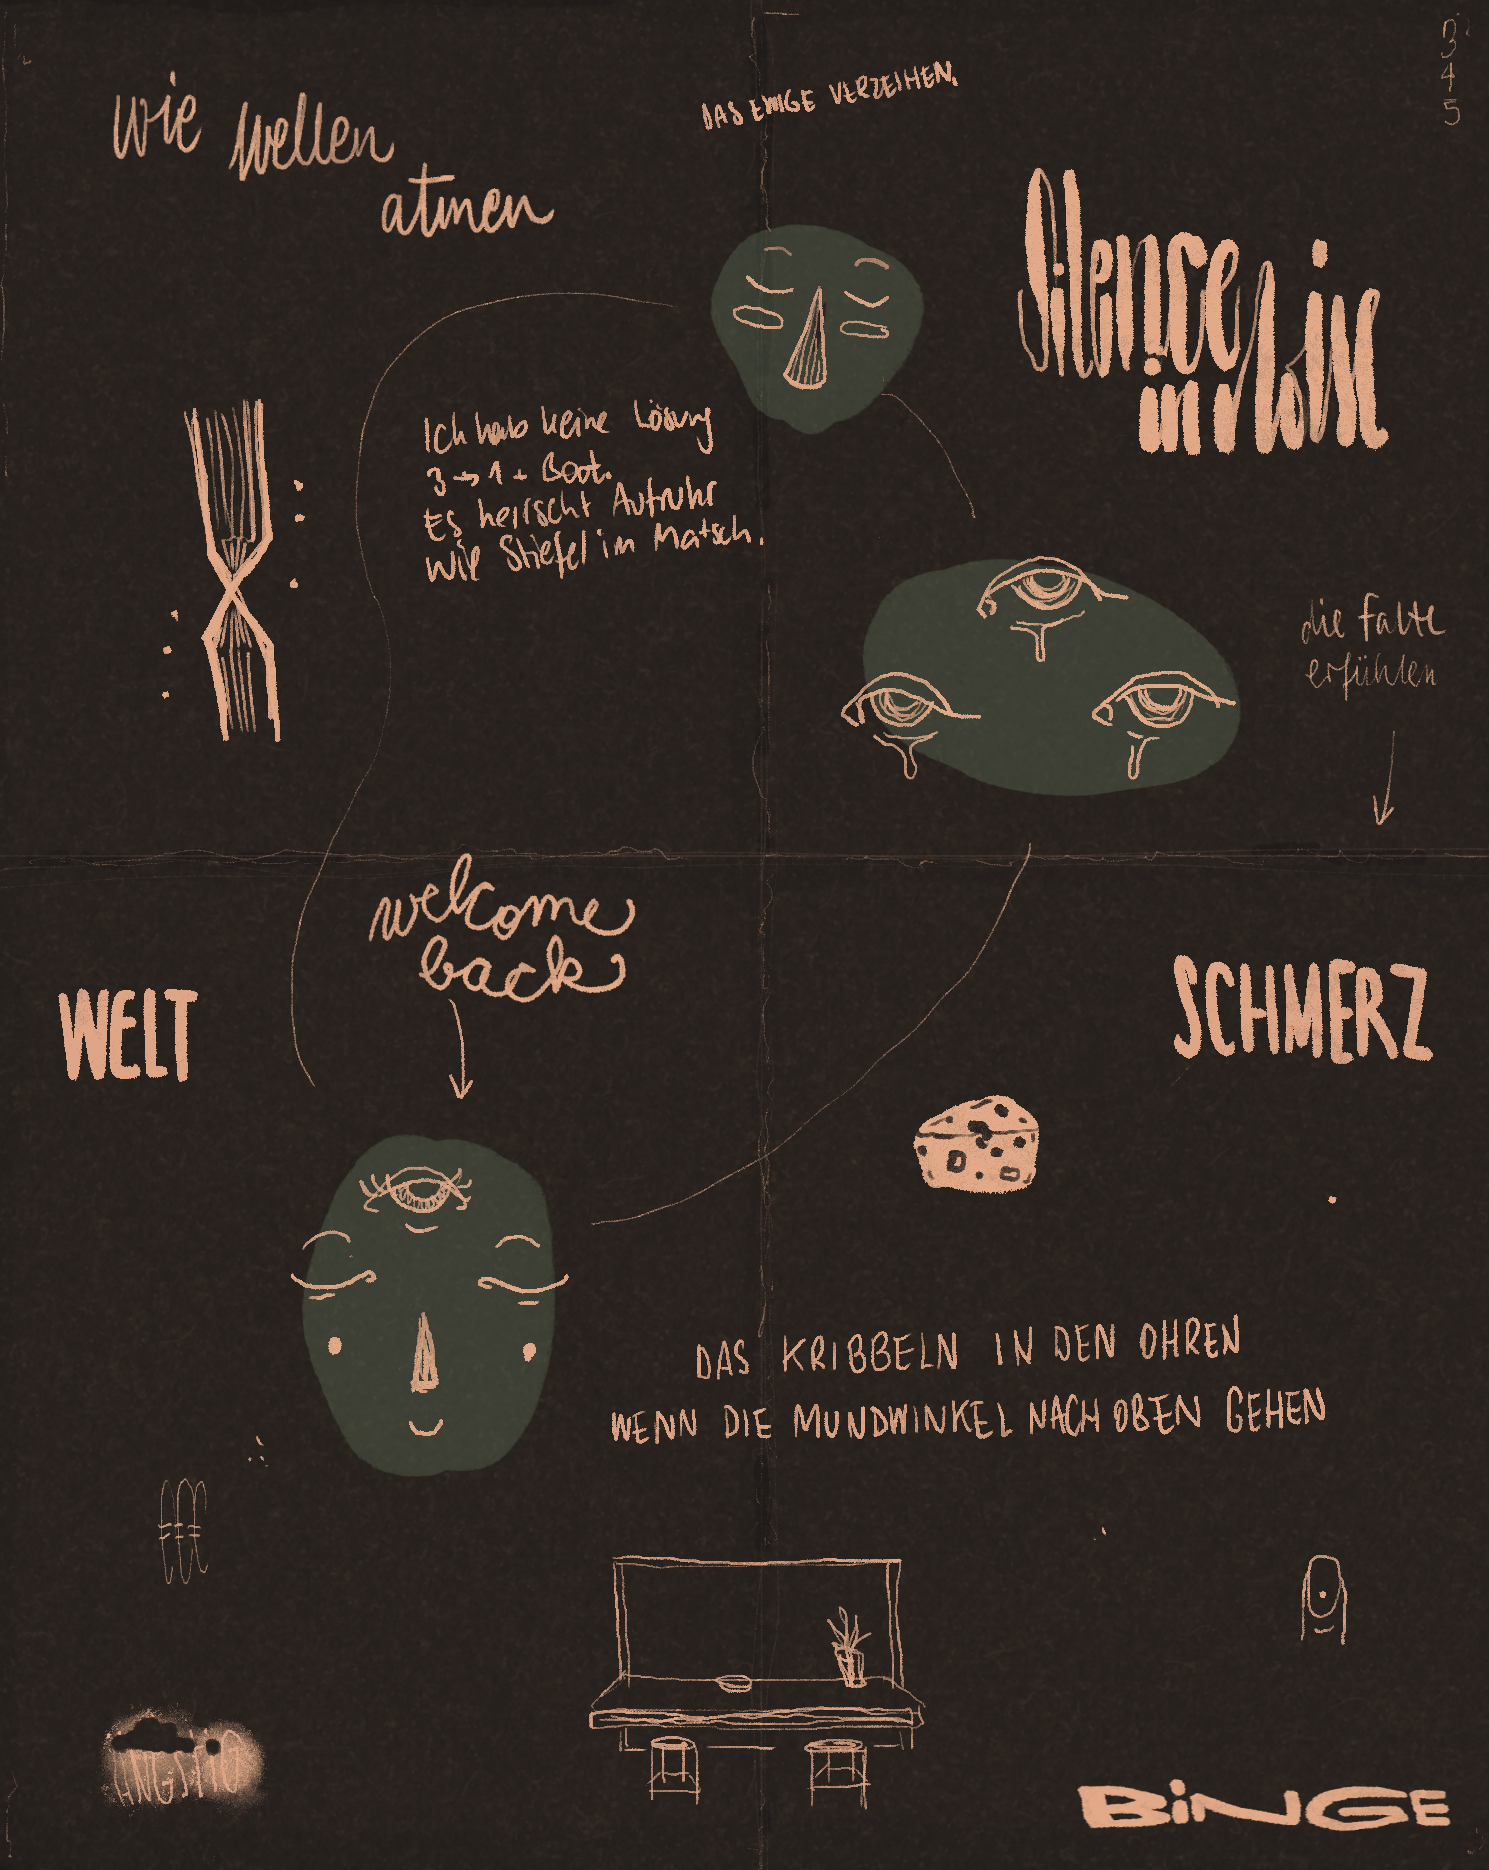 wie wellen
atmen
DAS EWIGE VERZEIHEN.
3
4
5
Silense
in Noise
Ich hab keine Lösung
3 → 1 + Boot.
Es herrscht Aufruhr
wie Stiefel im Matsch.
die Falte
erfühlen
welcome
back
WELT
SCHMERZ
DAS KRIBBELN IN DEN OHREN
WENN DIE MUNDWINKEL NACH OBEN GEHEN
BiNGE